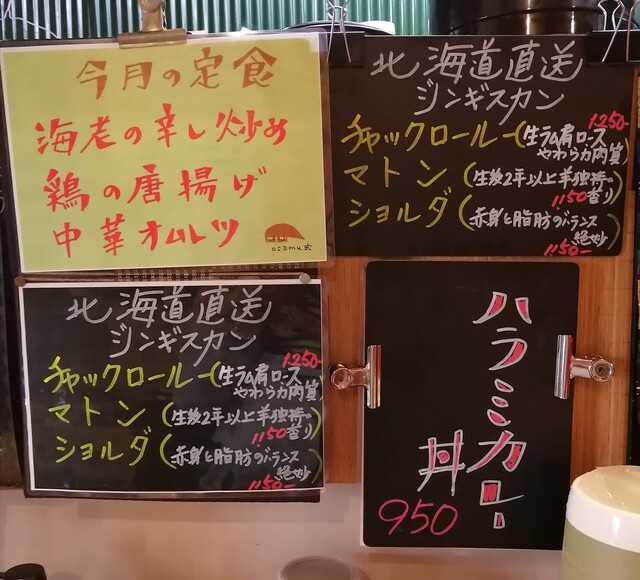 今月の定食
海老の辛し炒め
鶏の唐揚げ
中華オムレツ
osamu式
北海道直送
ジンギスカン
チャックロール(生ラム肩ロース
やわらか肉質)
1250-
マトン(生後2年以上羊独特の
香り)
1150
ショルダ(赤身と脂肪のバランス
絶妙)
1150-
北海道直送
ジンギスカン
チャックロール(生ラム肩ロース
やわらか肉質)
1250-
マトン(生後2年以上羊独特の
香り)
1150
ショルダ(赤身と脂肪のバランス
絶妙)
1150-
ハラミカレー
丼
950